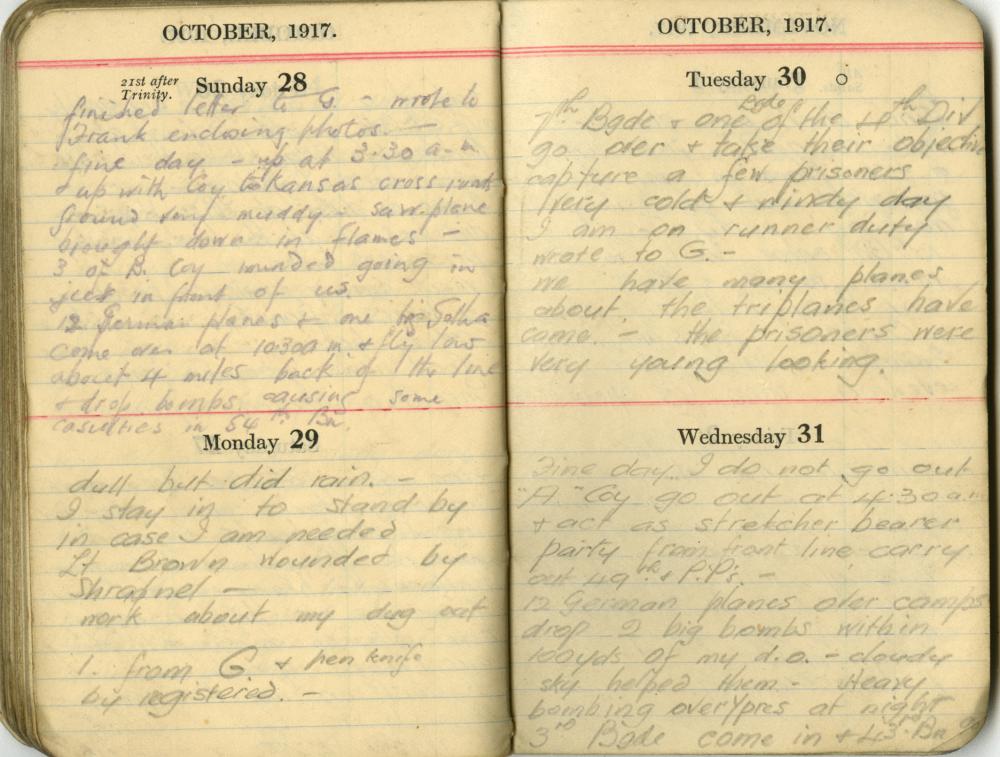 OCTOBER, 1917.
21st after Trinity. Sunday 28
finished letter to G. - wrote to
Frank enclosing photos. -
fine day - up at 3.30 a-m
+ up with Coy to Kansas cross roads
Ground very muddy - saw plane
brought down in flames -
3 of B. Coy wounded going in
just in front of us.
12 German planes + one big Gotha
come over at 10.30 a m. + fly low
about 4 miles back of the line
+ drop bombs causing some
casulties in 54th Bn.
Monday 29
dull but did rain. -
I stay in to stand by
in case I am needed
Lt Brown wounded by
Shrapnel -
work about my dug out
1. from G + pen knife
by registered. -
OCTOBER, 1917.
Tuesday 30
7th Bgde + one Bgde of the 4th Div
go over + take their objective
capture a few prisoners
very cold + windy day
I am on runner duty
wrote to G. -
we have many planes
about, the triplanes have
came. - the prisoners were
very young looking.
Wednesday 31
Fine day. I do not go out
"A" Coy go out at 4.30 a.m
+ act as stretcher bearer
party from front line carry
out 49th + P.P's. -
12 German planes over camps
drop 2 big bombs within
100yds of my d.o. - cloudy
sky helped them - Heavy
bombing over Ypres at night
3rd Bgde come in + 43rd Bn